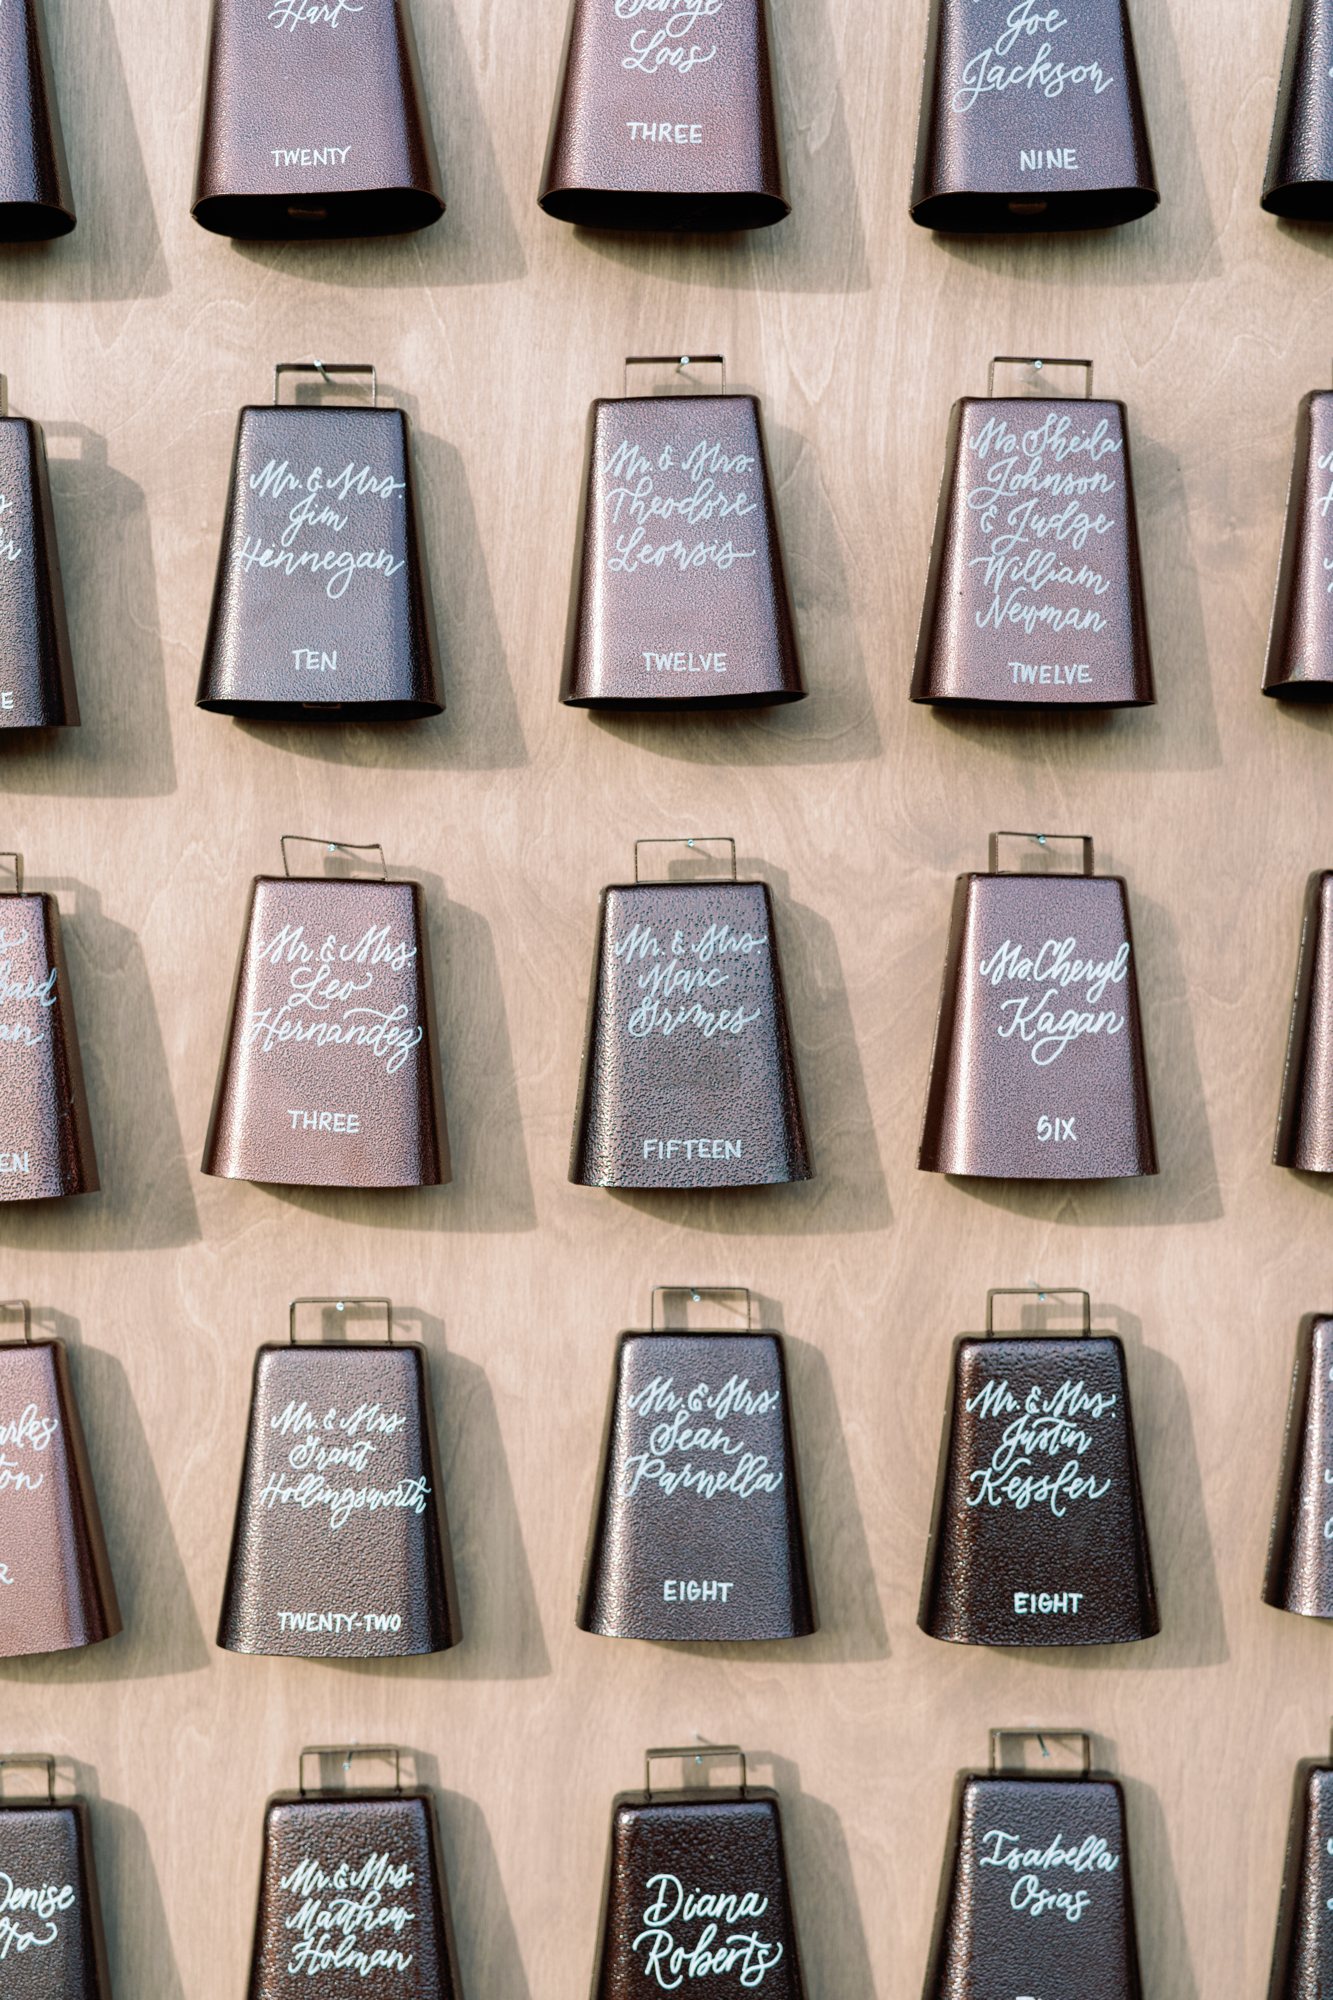 Hart
TWENTY
George
Loos
THREE
Joe
Jackson
NINE
E
Mr. & Mrs.
Jim
Hennegan
TEN
Mr. & Mrs.
Theodore
Leonsis
TWELVE
Ms. Sheila
Johnson
& Judge
William
Newman
TWELVE
EN
Mr. & Mrs
Leo
Hernandez
THREE
Mr. & Mrs.
Marc
Grimes
FIFTEEN
Ms. Cheryl
Kagan
SIX
Mr. & Mrs.
Grant
Hollingsworth
TWENTY-TWO
Mr. & Mrs.
Sean
Parnella
EIGHT
Mr. & Mrs.
Justin
Kessler
EIGHT
Denise
Mr. & Mrs.
Matthew
Holman
Diana
Roberts
Isabella
Osias